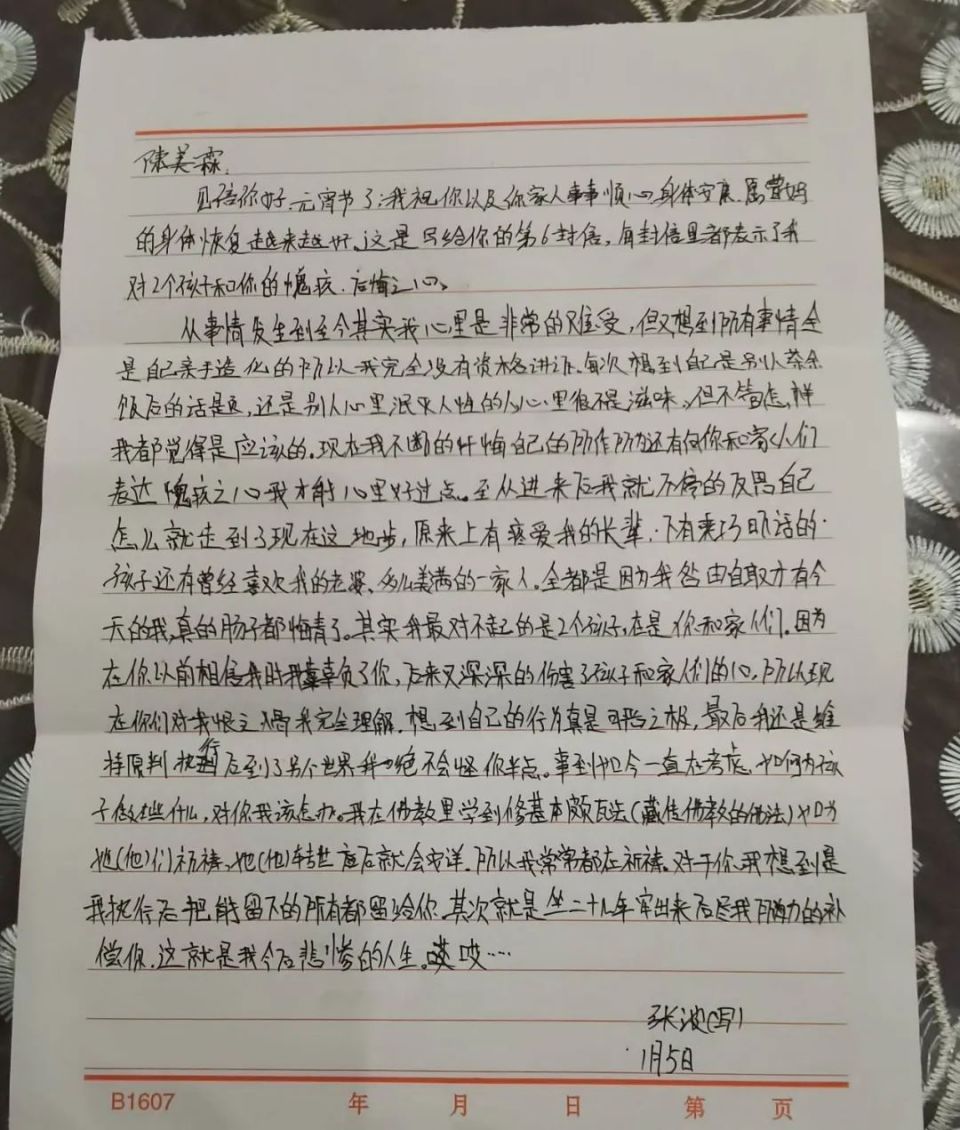 陈美霖:
见信你好、元宵节了;我祝你以及你家人事事顺心,身体安康.愿董妈
的身体恢复越来越好.这是写给你的第6封信,每封信里都表示了我
对2个孩子和你的愧疚.后悔之心。
从事情发生到至今其实我心里是非常的难受,但又想到所有事情全
是自己亲手造化的所以我完全没有资格讲诉.每次想到自己是别人茶余
饭后的话是,还是别人心里泯灭人性的人心里很不是滋味。但不管怎样
我都觉得是应该的.现在我不断的忏悔自己的所作所为还有向你和家人们
表达愧疚之心我才能心里好过点。至从进来后我就不停的反思自己
怎么就走到了现在这地步,原来上有疼爱我的长辈.下有乖巧听话的
孩子还有曾经喜欢我的老婆、多么美满的一家人.全都是因为我咎由自取才有今
天的我,真的肠子都悔青了。其实我最对不起的是2个孩子,在是你和家人们.因为
在你以前相信我时我辜负了你,后来又深深的伤害了孩子和家人们的心.所以现
在你们对我恨之入骨我完全理解.想到自己的行为真是可耻之极,最后我还是维
持原判执行后到了另个世界我也绝不会怪你半点。事到如今一直在考虑.如何为孩
子做些什么,对你我该怎办。我在佛教里学到修基本颇瓦法(藏传佛教的佛法)如为
她(他)们祈祷,她(他)转世庭后就会安详.所以我常常都在祈祷。对于你、我想到是
我执行后把能留下的所有都留给你.其次就是坐二十几年牢出来后尽我所能力的补
偿你.这就是我今后悲惨的人生。哎哎…
张波(写)
1月5日
B1607 年 月 日 第 页